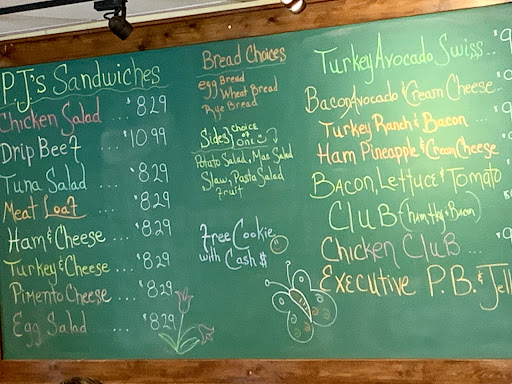 P.J's Sandwiches
Chicken Salad ... $8.29
Drip Beef ... $10.99
Tuna Salad ... $8.29
Meat Loaf ... $8.29
Ham & Cheese ... $8.29
Turkey & Cheese ... $8.29
Pimento Cheese ... $8.29
Egg Salad .... $8.29
Bread Choices
Egg Bread
Wheat Bread
Rye Bread
Sides } choice of one
Potato Salad, Mac Salad
Slaw, Pasta Salad
Fruit
Free Cookie
with Cash $
Turkey Avocado Swiss.. $9
Bacon Avocado & Cream Cheese..
Turkey Ranch & Bacon ...
Ham Pineapple & Cream Cheese
Bacon, Lettuce & Tomato
Club (Ham, Tky & Bacon)
Chicken Club ...
Executive P.B. & Jell